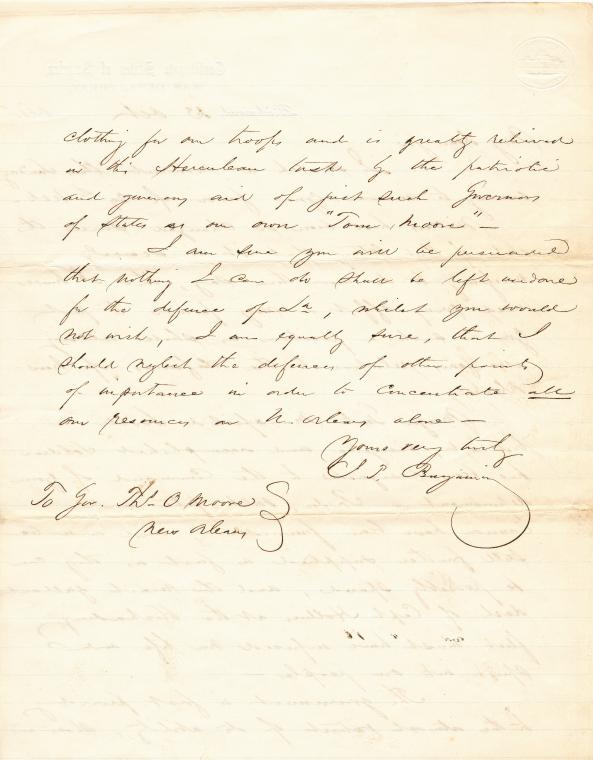 clothing for our troops and is greatly relieved
in this Herculean task by the patriotic
and generous aid of just such Governors
of States as our own "Tom Moore" —
I am sure you will be persuaded
that nothing I can do shall be left undone
for the defence of La, whilst you would
not wish, I am equally sure, that I
should neglect the defences of other points
of importance in order to concentrate all
our resources on N. Orleans alone —
Yours very truly
J. P. Benjamin
To Gov. Thos O Moore
New Orleans